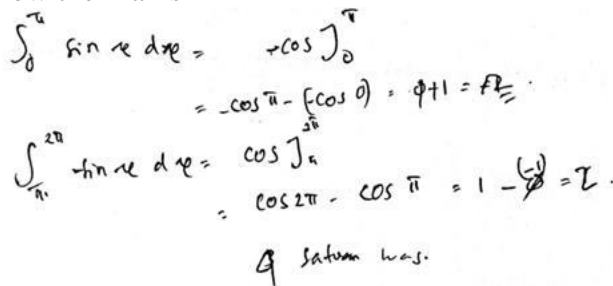 ∫₀^π sin x dx = -cos]₀^π
= -cos π - (-cos 0) = 1 + 1 = 2
∫_π^2π -sin x dx = cos]_π^2π
= cos 2π - cos π = 1 - (-1) = 2.
saturn was.